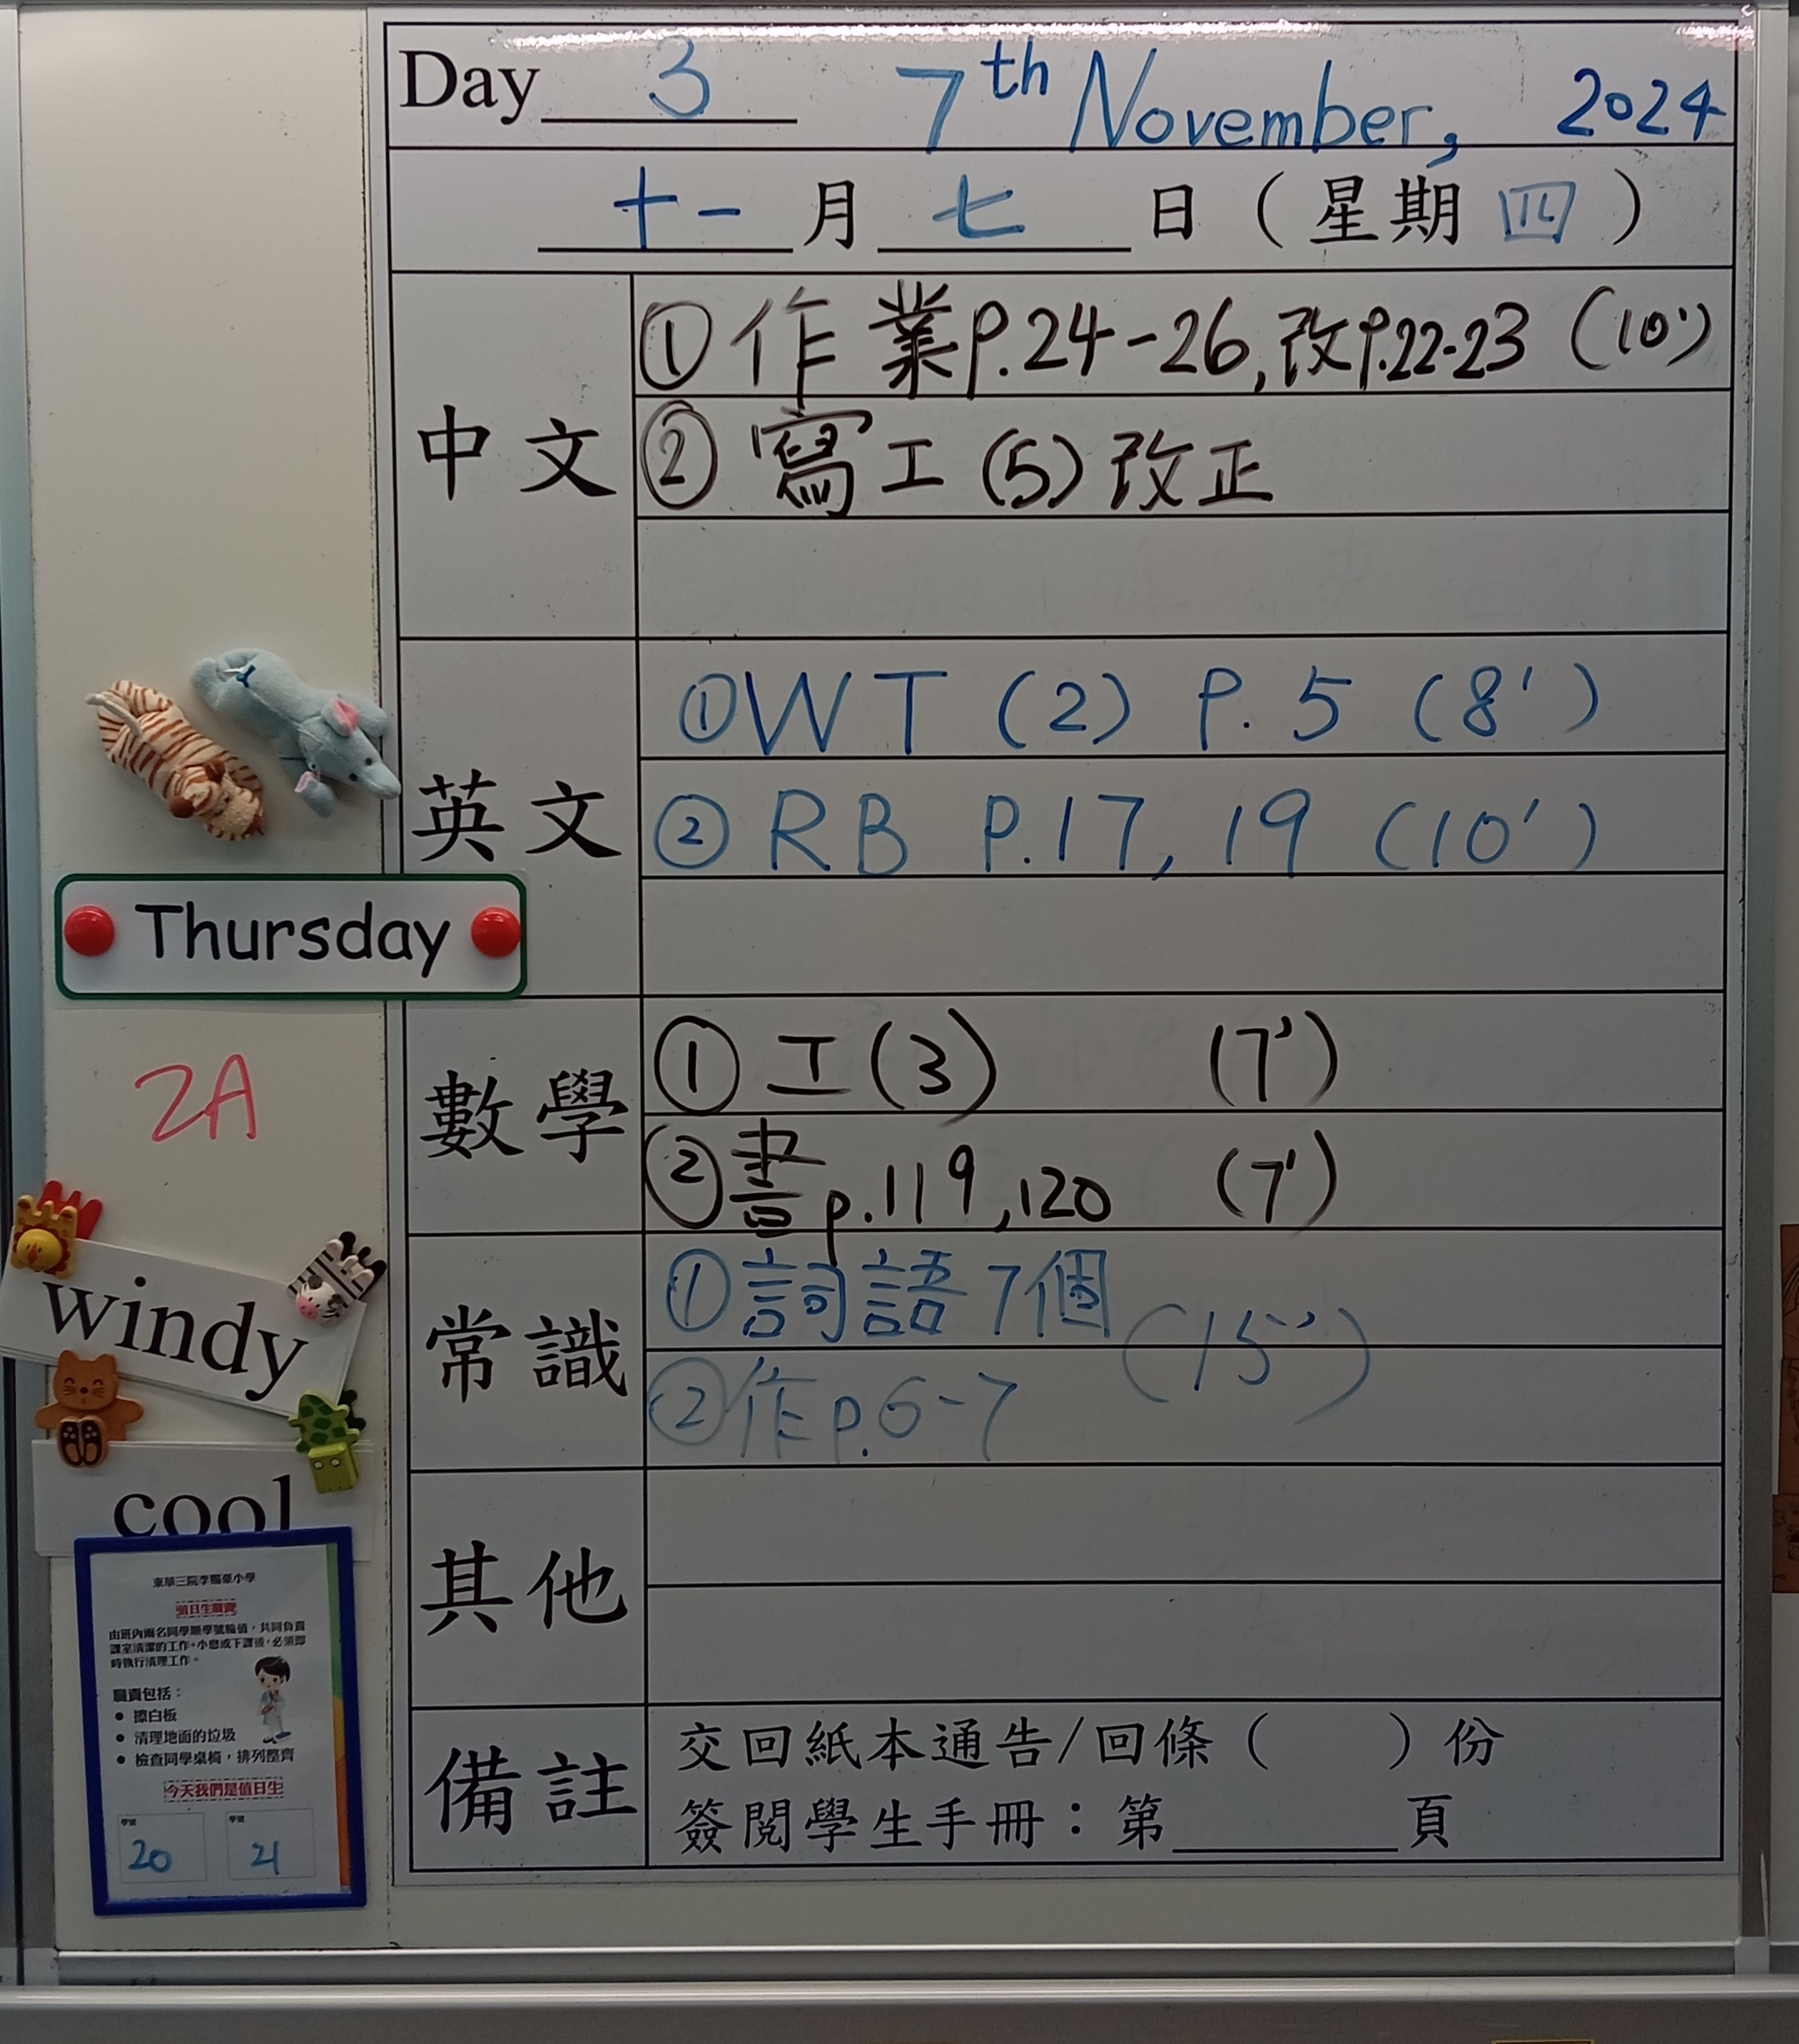 Day 3 7th November, 2024
十一月七日（星期四）
中文
①作業p.24-26,改p.22-23 (10')
②寫工(5)改正
英文
①WT (2) P. 5 (8')
②RB P.17, 19 (10')
Thursday
數學
①工(3) (7')
②書p.119,120 (7')
2A
常識
①詞語7個
②作p.6-7
(15')
windy
cool
其他
備註
交回紙本通告/回條（ ）份
簽閱學生手冊：第 頁
東華三院李賜豪小學
值日生職責
由班內兩名同學順學號輪值，共同負責
課室清潔的工作。小息或下課後，必須即
時執行清理工作。
職責包括：
● 擦白板
● 清理地面的垃圾
● 檢查同學桌椅，排列整齊
今天我們是值日生
學號 學號
20 21